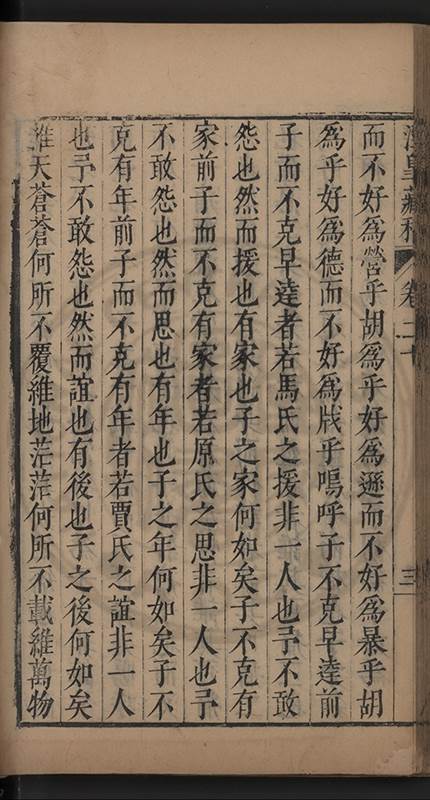 而不好為營乎胡為乎好為遜而不好為暴乎胡
為乎好為德而不好為戕乎嗚呼子不克早達前
子而不克早達者若馬氏之援非一人也予不敢
怨也然而援也有家也子之家何如矣子不克有
家前子而不克有家者若原氏之思非一人也予
不敢怨也然而思也有年也子之年何如矣子不
克有年前子而不克有年者若賈氏之誼非一人
也予不敢怨也然而誼也有後也子之後何如矣
維天蒼蒼何所不覆維地茫茫何所不載維萬物
卷二十
三